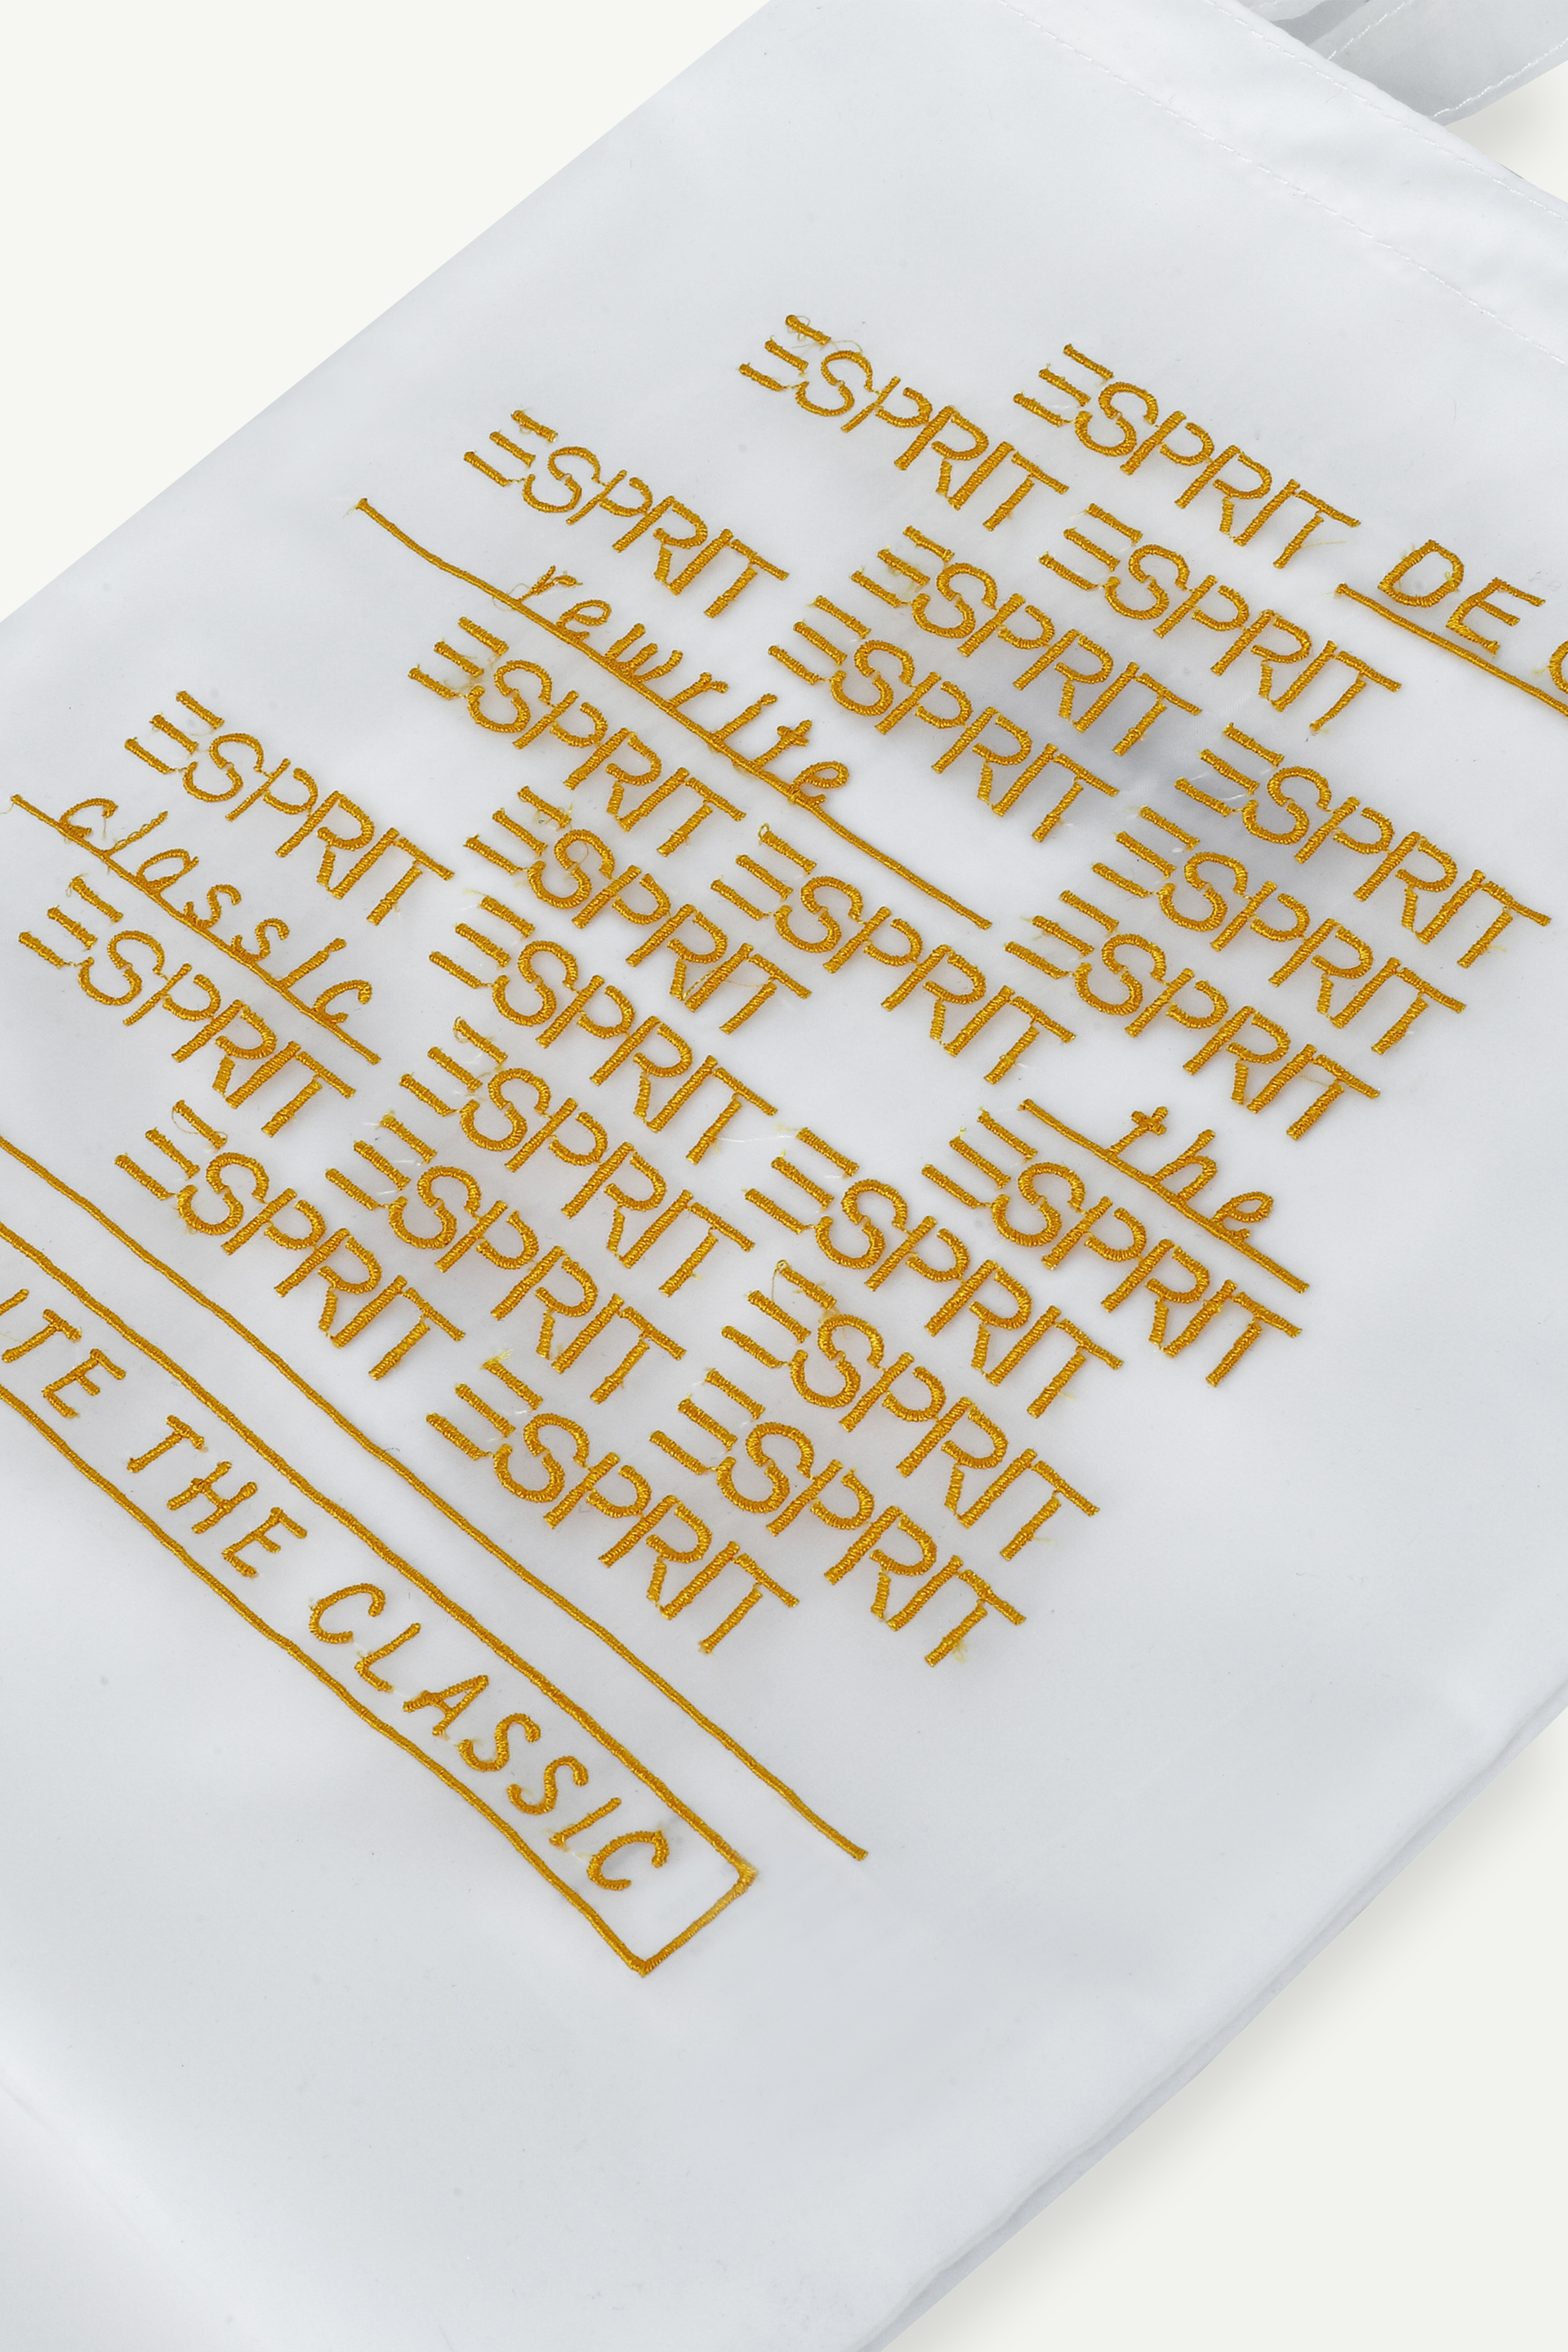 ESPRIT DE
ESPRIT ESPRIT
ESPRIT ESPRIT
ESPRIT ESPRIT ESPRIT
rewrite ESPRIT
ESPRIT ESPRIT the
ESPRIT ESPRIT
ESPRIT ESPRIT ESPRIT
classic ESPRIT ESPRIT
ESPRIT ESPRIT ESPRIT
ESPRIT ESPRIT
ITE THE CLASSIC